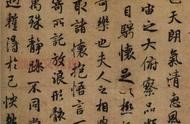 也天朗氣清惠風
宙之大俯察品
目騁懷足以極
可樂也夫人之相
取諸懷抱悟言
託放浪形骸
萬殊靜躁不同
遇暫得於己快然